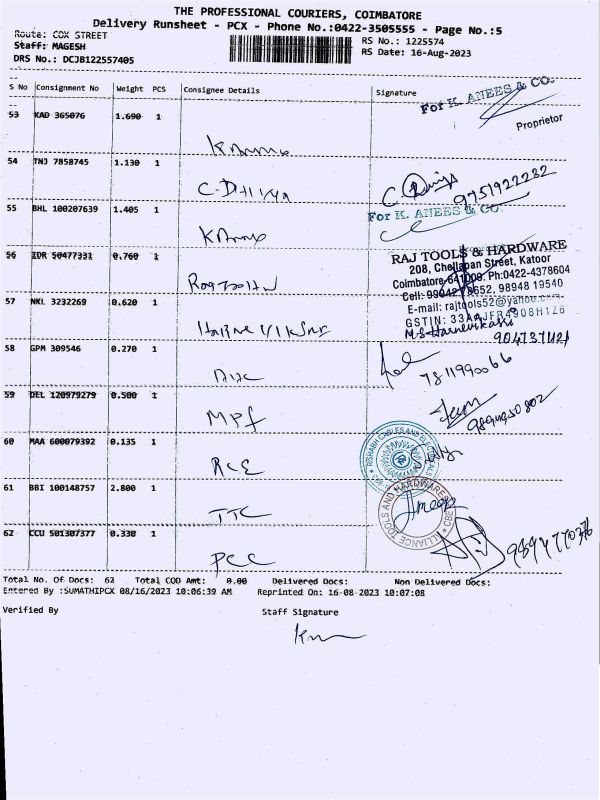 THE PROFESSIONAL COURIERS, COIMBATORE
Delivery Runsheet - PCX - Phone No.:0422-3505555 - Page No.:5
Route: COX STREET
RS No.: 1225574
Staff: MAGESH
RS Date: 16-Aug-2023
DRS No.: DCJB122557405
S No Consignment No Weight PCS Consignee Details Signature
For K. ANEES & CO.
Proprietor
53 KAD 365076 1.690 1
54 TNJ 7858745 1.130 1
9751922232
55 BHL 100207639 1.405 1
For K. ANEES & CO.
56 IDR 50477331 0.760 1
RAJ TOOLS & HARDWARE
208, Chellapan Street, Katoor
Coimbatore-641009. Ph:0422-4378604
98948 19540
E-mail: rajtools52@yahoo.com
57 NKL 3232269 0.620 1
GSTIN:
9047371121
58 GPM 309546 0.270 1
7811990066
59 DEL 120979279 0.500 1
MPF
60 MAA 600079392 0.135 1
RCE
RISHABH CABLES AND ELECTRICALS
61 BBI 100148757 2.800 1
TTC
ALLIANCE TOOLS AND HARDWARE CBE
62 CCU 501307377 0.330 1
PCC
Total No. Of Docs: 62 Total COD Amt: 0.00 Delivered Docs: Non Delivered Docs:
Entered By :SUMATHIPCX 08/16/2023 10:06:39 AM Reprinted On: 16-08-2023 10:07:08
Verified By Staff Signature